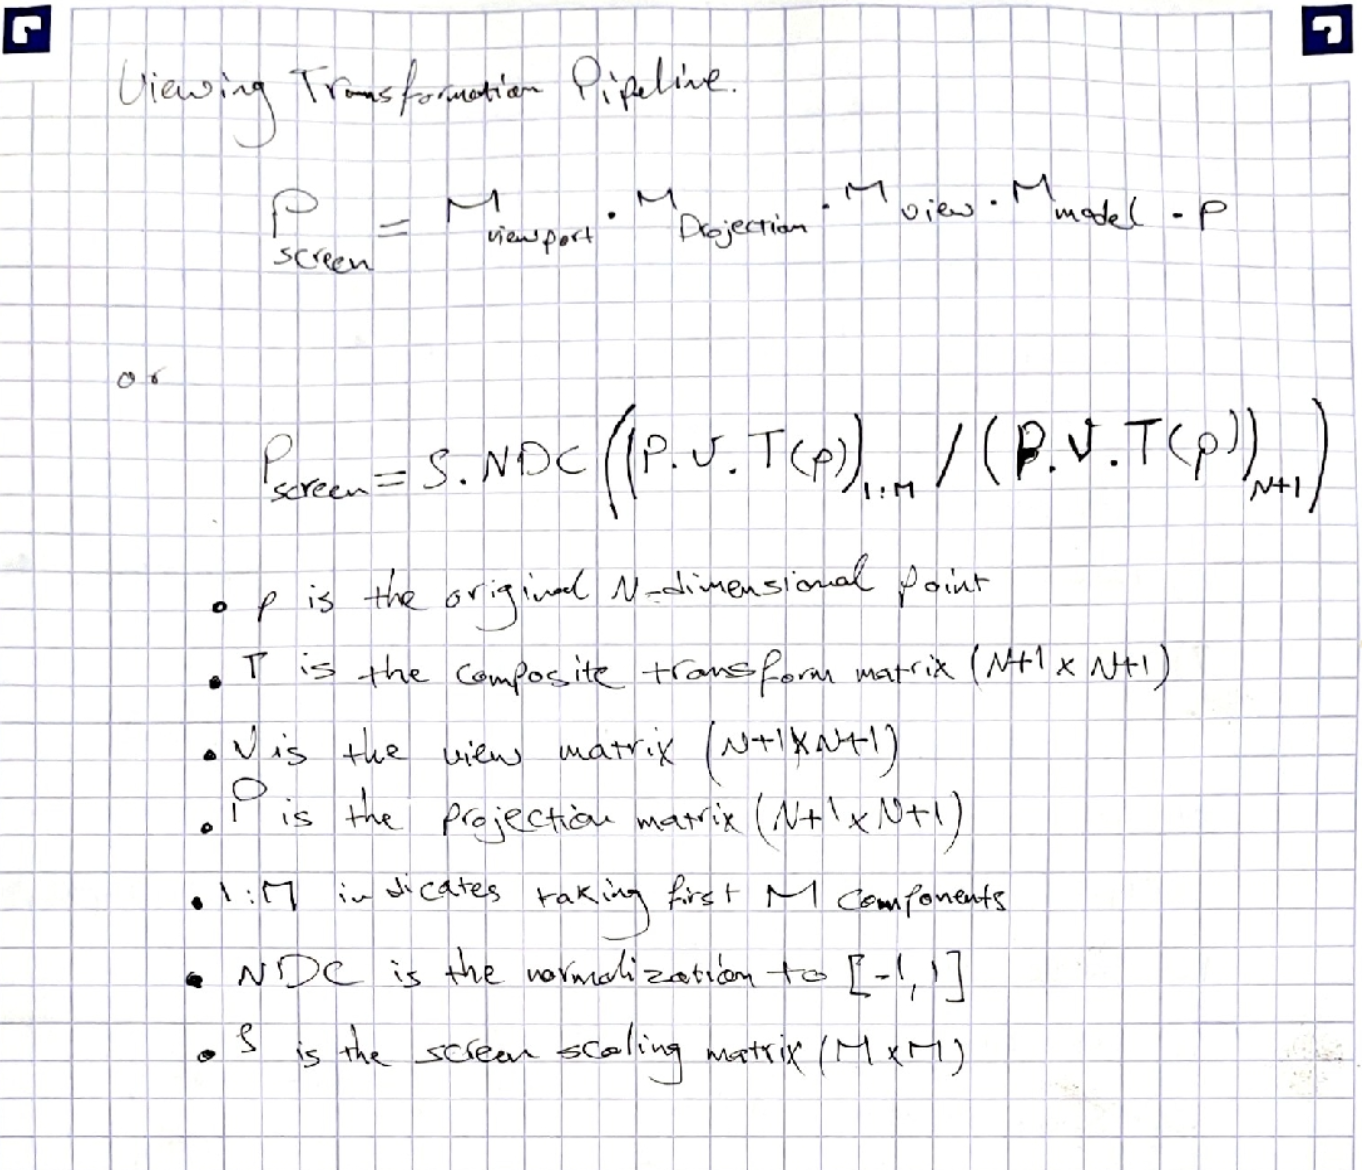 Viewing Transformation Pipeline.
P screen = M viewport . M Projection . M view . M model . P
or
P screen = S . NDC ((P.V.T(p)) 1:M / (P.V.T(p)) N+1)
• p is the original N-dimensional point
• T is the composite transform matrix (N+1 x N+1)
• V is the view matrix (N+1 x N+1)
• P is the projection matrix (N+1 x N+1)
• 1:M indicates taking first M components
• NDC is the normalization to [-1,1]
• S is the screen scaling matrix (M x M)